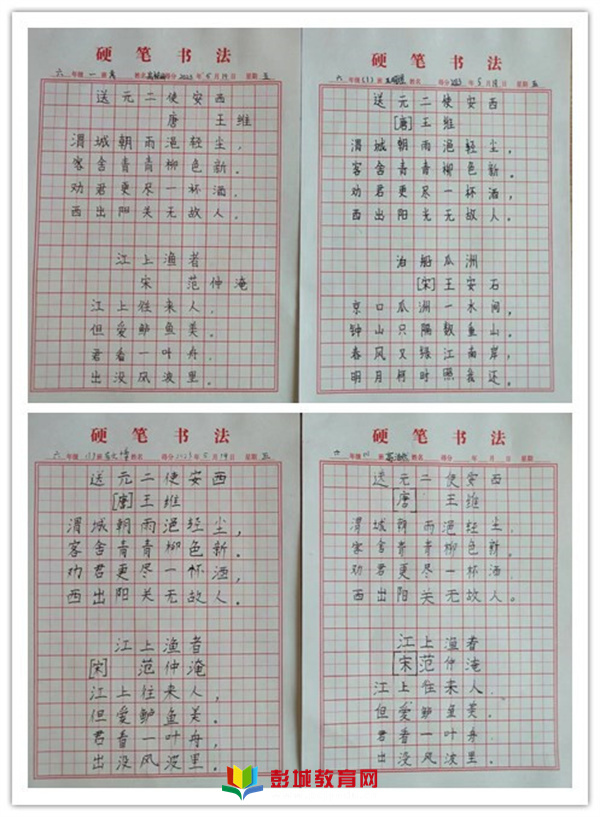 硬笔书法
六 年级 一 班 姓名 得分 2023 年 5 月 19 日 星期 五
送元二使安西
唐 王维
渭城朝雨浥轻尘，
客舍青青柳色新。
劝君更尽一杯酒，
西出阳关无故人。
江上渔者
宋 范仲淹
江上往来人，
但爱鲈鱼美。
君看一叶舟，
出没风波里。
硬笔书法
六 年级 (1) 班 姓名 得分 2023 年 5 月 19 日 星期 五
送元二使安西
[唐]王维
渭城朝雨浥轻尘，
客舍青青柳色新。
劝君更尽一杯酒，
西出阳关无故人。
泊船瓜洲
[宋]王安石
京口瓜洲一水间，
钟山只隔数重山。
春风又绿江南岸，
明月何时照我还。
硬笔书法
六 年级 (1) 班 姓名 得分 2023 年 5 月 19 日 星期 五
送元二使安西
[唐]王维
渭城朝雨浥轻尘，
客舍青青柳色新。
劝君更尽一杯酒，
西出阳关无故人。
江上渔者
[宋] 范仲淹
江上往来人，
但爱鲈鱼美。
君看一叶舟，
出没风波里。
硬笔书法
六 年级 班 姓名 得分 年 月 日 星期
送元二使安西
[唐] 王维
渭城朝雨浥轻尘
客舍青青柳色新。
劝君更尽一杯酒
西出阳关无故人。
江上渔者
[宋]范仲淹
江上往来人
但爱鲈鱼美。
君看一叶舟
出没风波里。
彭城教育网